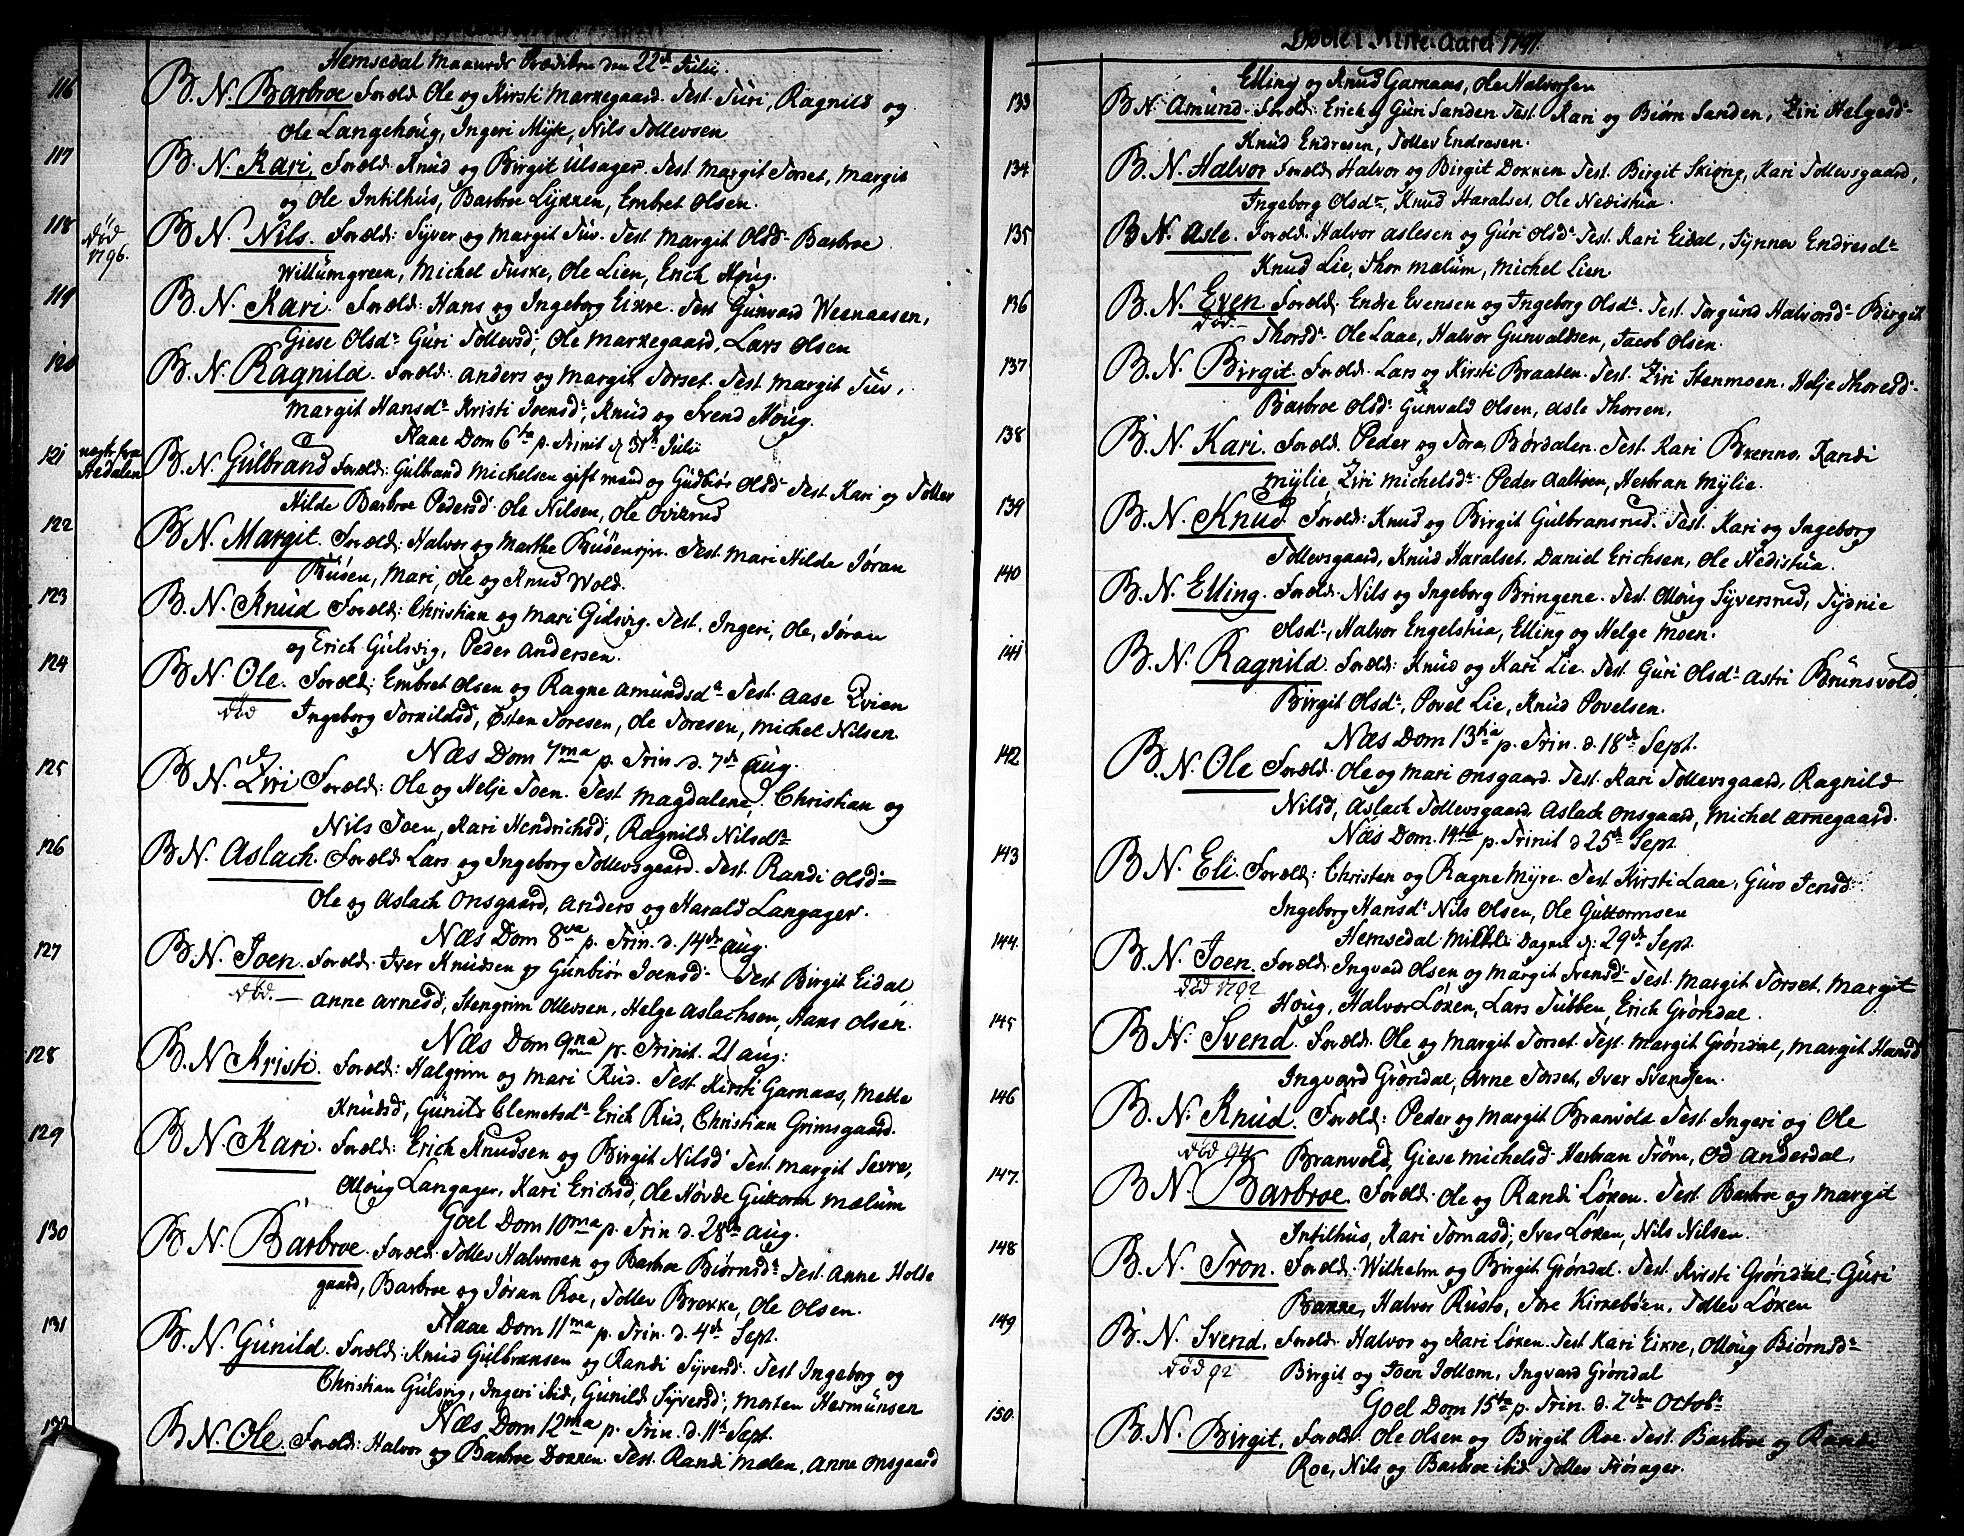 Hemsedal Maaneds Prædiken den 22de Julii
116 B. N. Barbroe Foræld Ole og Kirsti Markegaard. Test. Turi, Ragnild og
Ole Langehoug, Ingeri Myk, Nils Tollevsen
117 B. N. Kari, Foræld: Knud og Birgit Ulsager. Test Margit Torset, Margit
og Ole Intilhus, Barbroe Lykken, Embret Olsen.
118 død 1796. B. N. Nils. Foræld: Syver og Margit Tuv. Test Margit Olsd Barbroe
Willumgreen, Michel Tuske, Ole Lien, Erich Houg.
119 B. N. Kari Foræld: Hans og Ingeborg Eikre. Test Gunvard Weenaasen,
Giese Olsdr Guri Tollevsd, Ole Markegaard, Lars Olsen
120 B. N. Ragnild. Foræld: Anders og Margit Torset. Test. Margit Tuv,
Margit Hansdr Kristi Joensdr, Knud og Svend Houg.
Flaae Dom 6ta p. Trinit d 31te Julii
121 B. N. Gulbrand Foræld: Gulbrand Michelsen gift mand og Gudbiør Olsd Test Kari og Tollev
Hilde Barbroe Pedersdr Ole Nilsen, Ole Sviksrud
122 B. N. Margit. Foræld: Halvor og Marthe Busensjn. Test. Mari Hilde Jøran
Busen, Mari, Ole og Knud Wold.
123 B. N. Knud Foræld: Christian og Mari Gulsvig. Test. Ingeri, Ole, Jøran
og Erich Gulsvig, Peder Andersen.
124 B. N. Ole. Foræld: Embret Olsen og Ragne Amundsdr Test. Aase Evien
død Ingeborg Torkildsd, Østen Toresen, Ole Toresen, Michel Nilsen.
Næs Dom 7ma p. Trin. d. 7de Aug.
125 B. N. Ziri Foræld: Ole og Helje Toen. Test Magdalene, Christian og
Nils Toen, Kari Hendrichsd, Ragnild Nilsdr
126 B. N. Aslach. Foræld. Lars og Ingeborg Tollevsgaard. Test. Randi Olsdr
Ole og Aslach Onsgaard, Anders og Harald Langager.
Næs Dom 8va p. Trin. d. 14de Aug.
127 B. N. Joen. Foræld: Iver Knudsen og Gunbiør Joensdr Test Birgit Eidal,
død. Anne Arnesd, Stengrim Ollevsen, Helge Aslachsen, Hans Olsen.
Næs Dom 9na p. Trinit. 21 Aug:
128 B. N. Kristi. Foræld: Halgrim og Mari Rud. Test Kirsti Garnaas, Mette
Knudsd, Gunild Clemetsdr Erich Rud, Christian Grimsgaard.
129 B. N. Kari. Foræld: Erich Knudsen og Birgit Nilsd Test. Margit Sevre,
Ollóug Langager, Kari Erichsd, Ole Hovde Guttorm Mælum
Goel Dom 10ma p. Trin d. 28de Aug.
130 B. N. Barbroe. Foræld: Tollev Halvorsen og Barbroe Biørnsdr Test. Anne Holde
gaard, Barbroe og Jøran Roe, Tollev Brekke, Ole Olsen.
Flaae Dom 11ma p. Trin. d. 4de Sept.
131 B. N. Gunild. Foræld: Knud Gulbransen og Randi Syversd. Test Ingeborg og
Christian Gulsvig, Ingeri ibid, Gunild Syversd, Morten Hermunsen
Næs Dom 12ma p. Trin. d. 11te Sept.
132 B. N. Ole. Foræld: Halvor og Barbroe Dokken. Test. Randi Mælen, Anne Onsgaard
Døbte i Kirke Aaret 1791.
Elling og Knud Garnaas, Ole Halvorsen
133 B. N. Amund. Foræld: Erich og Guri Sanden Test. Kari og Biørn Sanden, Ziri Helgesdr
Knud Endresen, Tollev Endresen.
134 B. N. Halvor Foræld: Halvor og Birgit Dokken Test. Birgit Skióng, Kari Tollevsgaard,
Ingeborg Olsdr, Knud Haralset, Ole Nedistua.
135 B. N. Asle. Foræld: Halvor Aslesen og Guri Olsdr Test. Kari Eidal, Synnev Endresdr
Knud Lie, Thor Mælum, Michel Lien
136 B. N. Even Foræld: Endre Evensen og Ingeborg Olsdr Test. Torgund Halvorsdr Birgit
død Thorsdr Ole Laae, Halvor Gunvaldsen, Jacob Olsen.
137 B. N. Birgit. Foræld: Lars og Kirsti Braaten. Test. Ziri Stenmoen, Helje Thoresdr
Barbroe Olsd. Gunvald Olsen, Asle Thorsen,
138 B. N. Kari. Foræld. Peder og Tora Børdalen. Test. Kari Brenno, Randi
Mylie Ziri Michelsdr Peder Aaltsen, Herbran Mylie.
139 B. N. Knud. Foræld: Knud og Birgit Gulbransrud. Test. Kari og Ingeborg
Tollevsgaard, Knud Haralset, Daniel Erichsen, Ole Nedistua.
140 B. N. Elling. Foræld: Nils og Ingeborg Bringene. Test. Olloug Syversrud, Sydnie
Olsdr, Halvor Engelstua, Elling og Helge Moen.
141 B. N. Ragnild. Foræld: Knud og Kari Lie. Test. Guri Olsdr Astri Brunsvold
Birgit Olsdr, Povel Lie, Knud Povelsen.
Næs Dom 13tia p. Trin. d. 18de Sept.
142 B. N. Ole Foræld: Ole og Mari Onsgaard. Test. Kari Tollevsgaard, Ragnild
Nilsd, Aslach Tollevsgaard, Aslach Onsgaard, Michel Arnegaard.
Næs Dom. 14ta p. Trinit d 25de Sept
143 B. N. Eli Foræld: Christen og Ragne Myre. Test Kirsti Laae, Guro Jensd
Ingeborg Hansdr Nils Olsen, Ole Guttormsen
Hemsedal Mikkels Dagen d: 29de Sept
144. B. N. Joen. Foræld: Ingvard Olsen og Margit Svensdr Test. Margit Torset, Margit
død 1792 Houg, Halvor Løken, Lars Tubben, Erich Grøndal.
145 B. N. Svend. Foræld: Ole og Margit Torset. Test. Margit Grøndal, Margit Hansd
Ingvard Grøndal, Arne Torset, Iver Svendsen.
146 B. N. Knud. Foræld: Peder og Margit Branvold Test. Ingeri og Ole
død 94 Branvold, Giese Michelsd. Herbran Trøm, Od Anderdal,
147. B. N. Barbroe. Foræld: Ole og Randi Løken. Test. Barbroe og Margit
Intilhus, Kari Tomasd, Iver Løken, Nils Nilsen.
148 B. N. Tron. Foræld. Wilhelm og Birgit Grøndal. Test. Kirsti Grøndal, Guri
Bakke, Halvor Rusto, Tore Kirkebøen, Tollev Løken
149 B. N. Svend. Foræld: Halvor og Kari Løken. Test Kari Eikre, Olloug Biørnsdr
død 92 Birgit og Joen Tottom, Ingvard Grøndal
Goel Dom 15ta p. Trin. d. 2den Octobr
150. B. N. Birgit. Foræld: Ole Olsen og Birgit Roe. Test. Barbroe og Randi
Roe, Nils og Barbroe ibid. Tollev Trøsager.